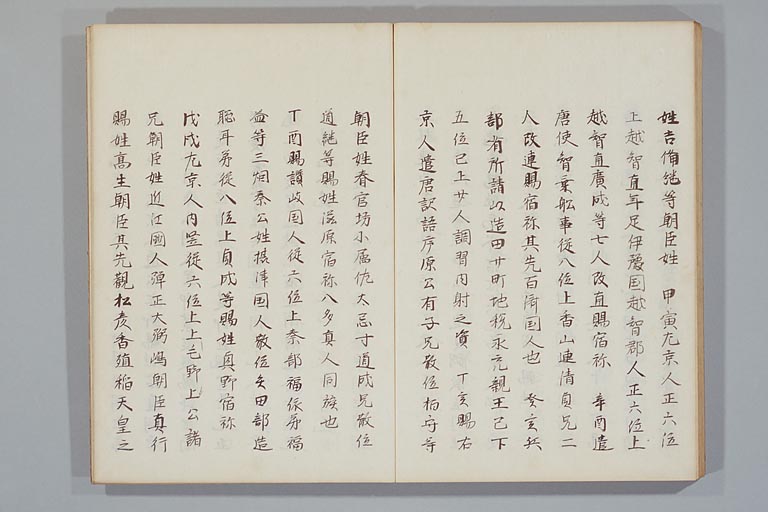 姓吉備継等朝臣姓　甲寅左京人正六位
上越智直年足伊豫国越智郡人正六位上
越智直廣成等七人改直賜宿祢　辛酉遣
唐使智乗舩事従八位上香山連清貞兄二
人改連賜宿祢其先百済国人也　癸亥兵
部省所請以造田廿町地税永充親王已下
五位已上廿人調習内射之資　丁亥賜右
京人遣唐訳語序原公有子兄散位柏守等
朝臣姓春宮坊小属佐太忌寸道成兄散位
道継等賜姓滋原宿祢八多真人同族也
丁酉賜讃岐国人従六位上秦部福依弟福
益等三烟秦公姓摂津国人散位矢田部造
聡耳弟従八位上貞成等賜姓興野宿祢
戊戌左京人内竪従六位上上毛野上公諸
兄朝臣姓近江國人弾正大弼嶋朝臣真行
賜姓高生朝臣其先觀松彦香殖稲天皇之